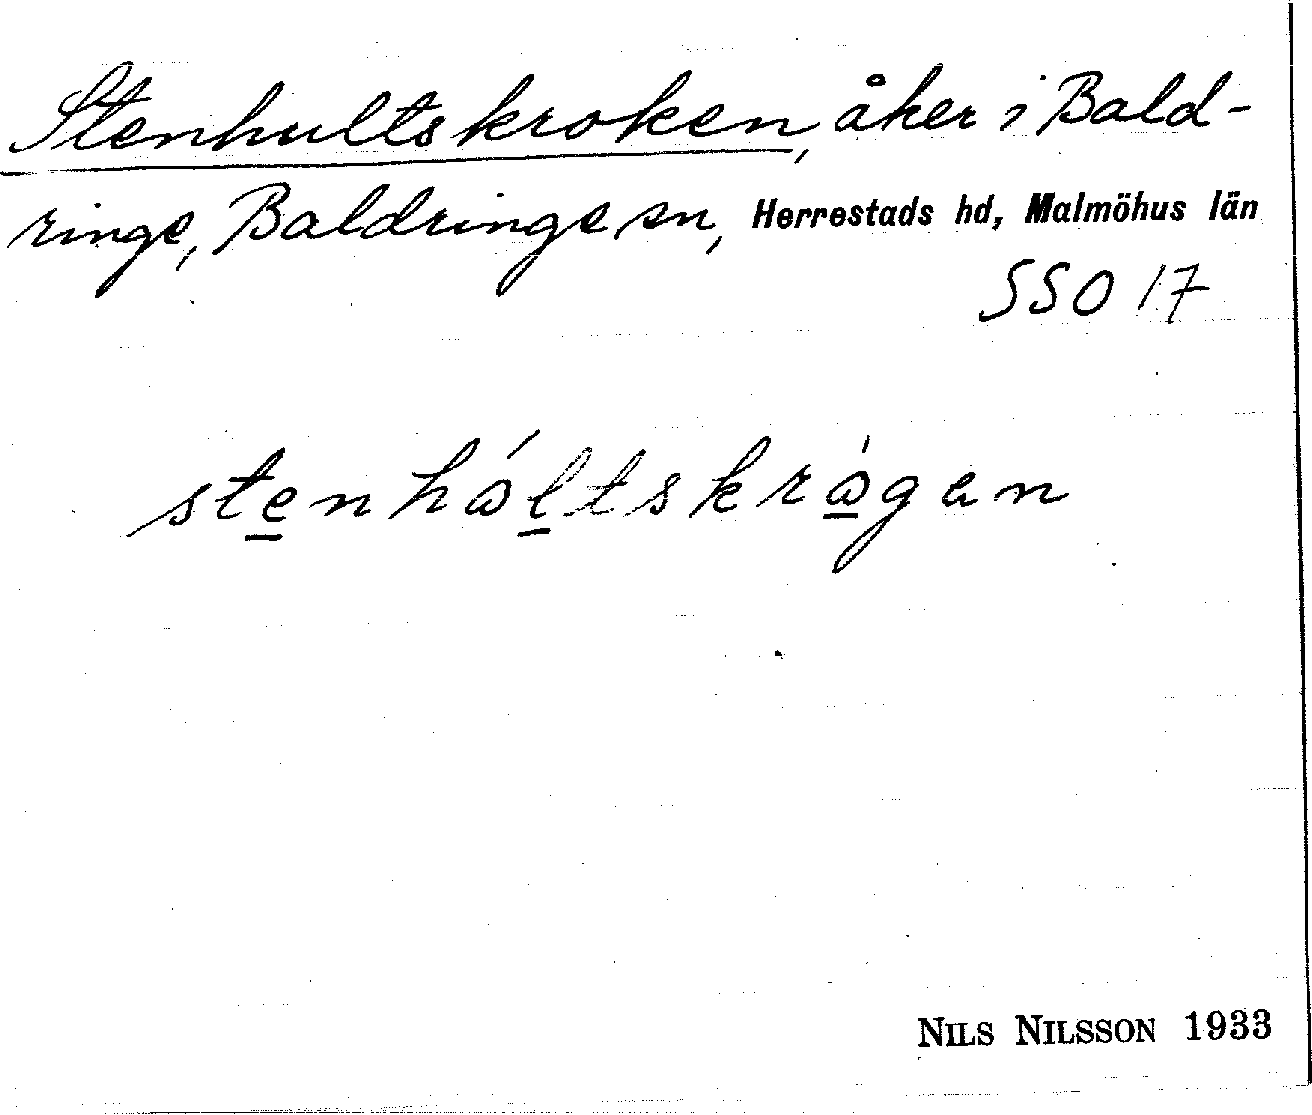 Stenhultskroken, åker i Bald-
ringe, Baldringe sn, Herrestads hd, Malmöhus län
SSO 17
stenhåltskrågen
NILS NILSSON 1933